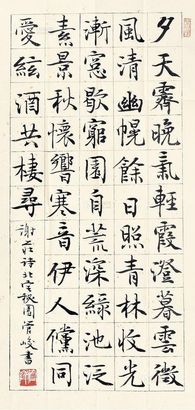 夕天霽晚氣輕霞澄暮雲微
風清幽幌餘日照青林收光
漸窓歇窮園自荒深綠池泛
素景秋懷響寒音伊人儻同
愛絃酒共棲尋
謝莊詩北宅秘園管峻書